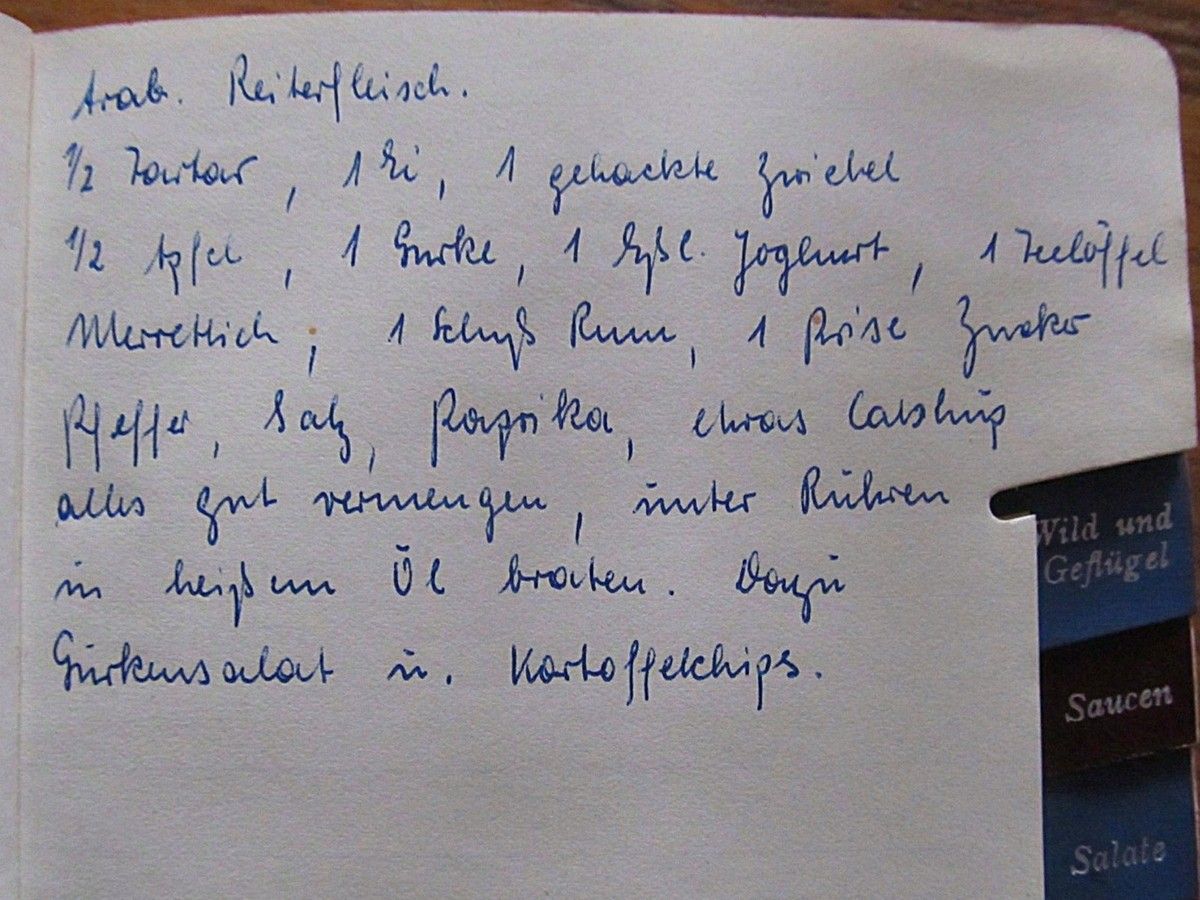 Arab. Reiterfleisch.
1/2 Tartar, 1 Ei, 1 gehackte Zwiebel
1/2 Apfel, 1 Gurke, 1 Eßl. Joghurt, 1 Teelöffel
Merrettich, 1 Schuß Rum, 1 Prise Zucker
Pfeffer, Salz, Paprika, etwas Catshup
alles gut vermengen, unter Rühren
in heißem Öl braten. Dazu
Gurkensalat u. Kartoffelchips.
Wild und
Geflügel
Saucen
Salate